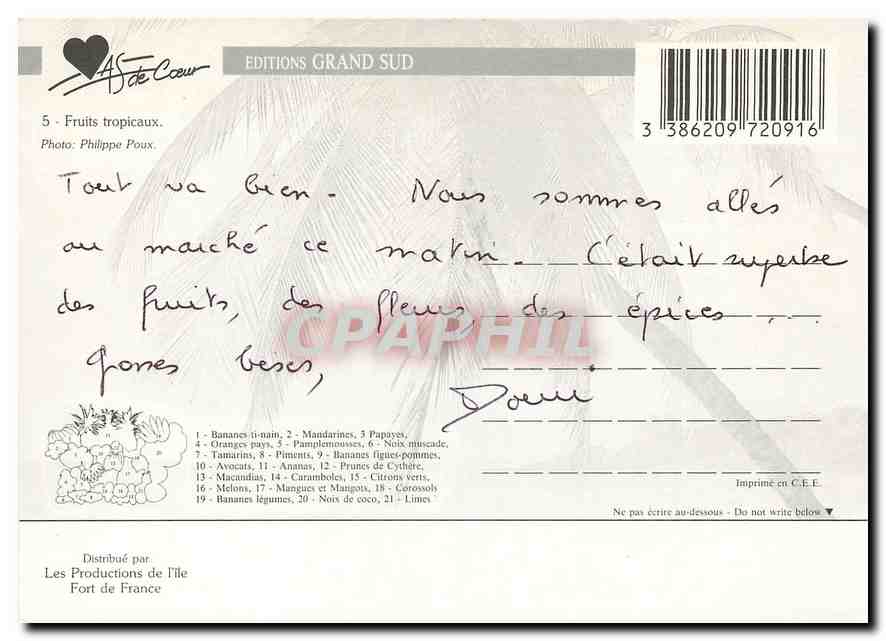 As de Cœur
EDITIONS GRAND SUD
3 386209 720916
5 - Fruits tropicaux.
Photo: Philippe Poux.
Tout va bien - Nous sommes allés
au marché ce matin. C'était superbe
des fruits, des fleurs, des épices ...
Grosses bises,
CPAPHIL
1 - Bananes ti-nain, 2 - Mandarines, 3 Papayes,
4 - Oranges pays, 5 - Pamplemousses, 6 - Noix muscade,
7 - Tamarins, 8 - Piments, 9 - Bananes figues-pommes,
10 - Avocats, 11 - Ananas, 12 - Prunes de Cythère,
13 - Macandias, 14 - Caramboles, 15 - Citrons verts,
16 - Melons, 17 - Mangues et Mangots, 18 - Corossols
19 - Bananes légumes, 20 - Noix de coco, 21 - Limes
Imprimé en C.E.E.
Ne pas écrire au-dessous - Do not write below ▼
Distribué par
Les Productions de l'île
Fort de France